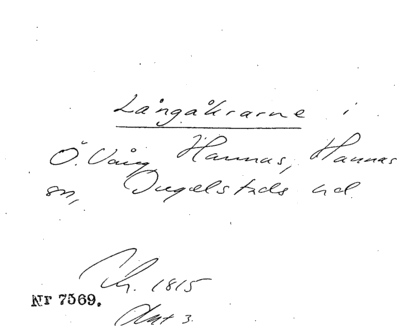 Långåkrarne i
Ö. Vång Hannas, Hannas
sn, Ingelstads hd.
Ch. 1815
Nr 7569.
Akt 3.